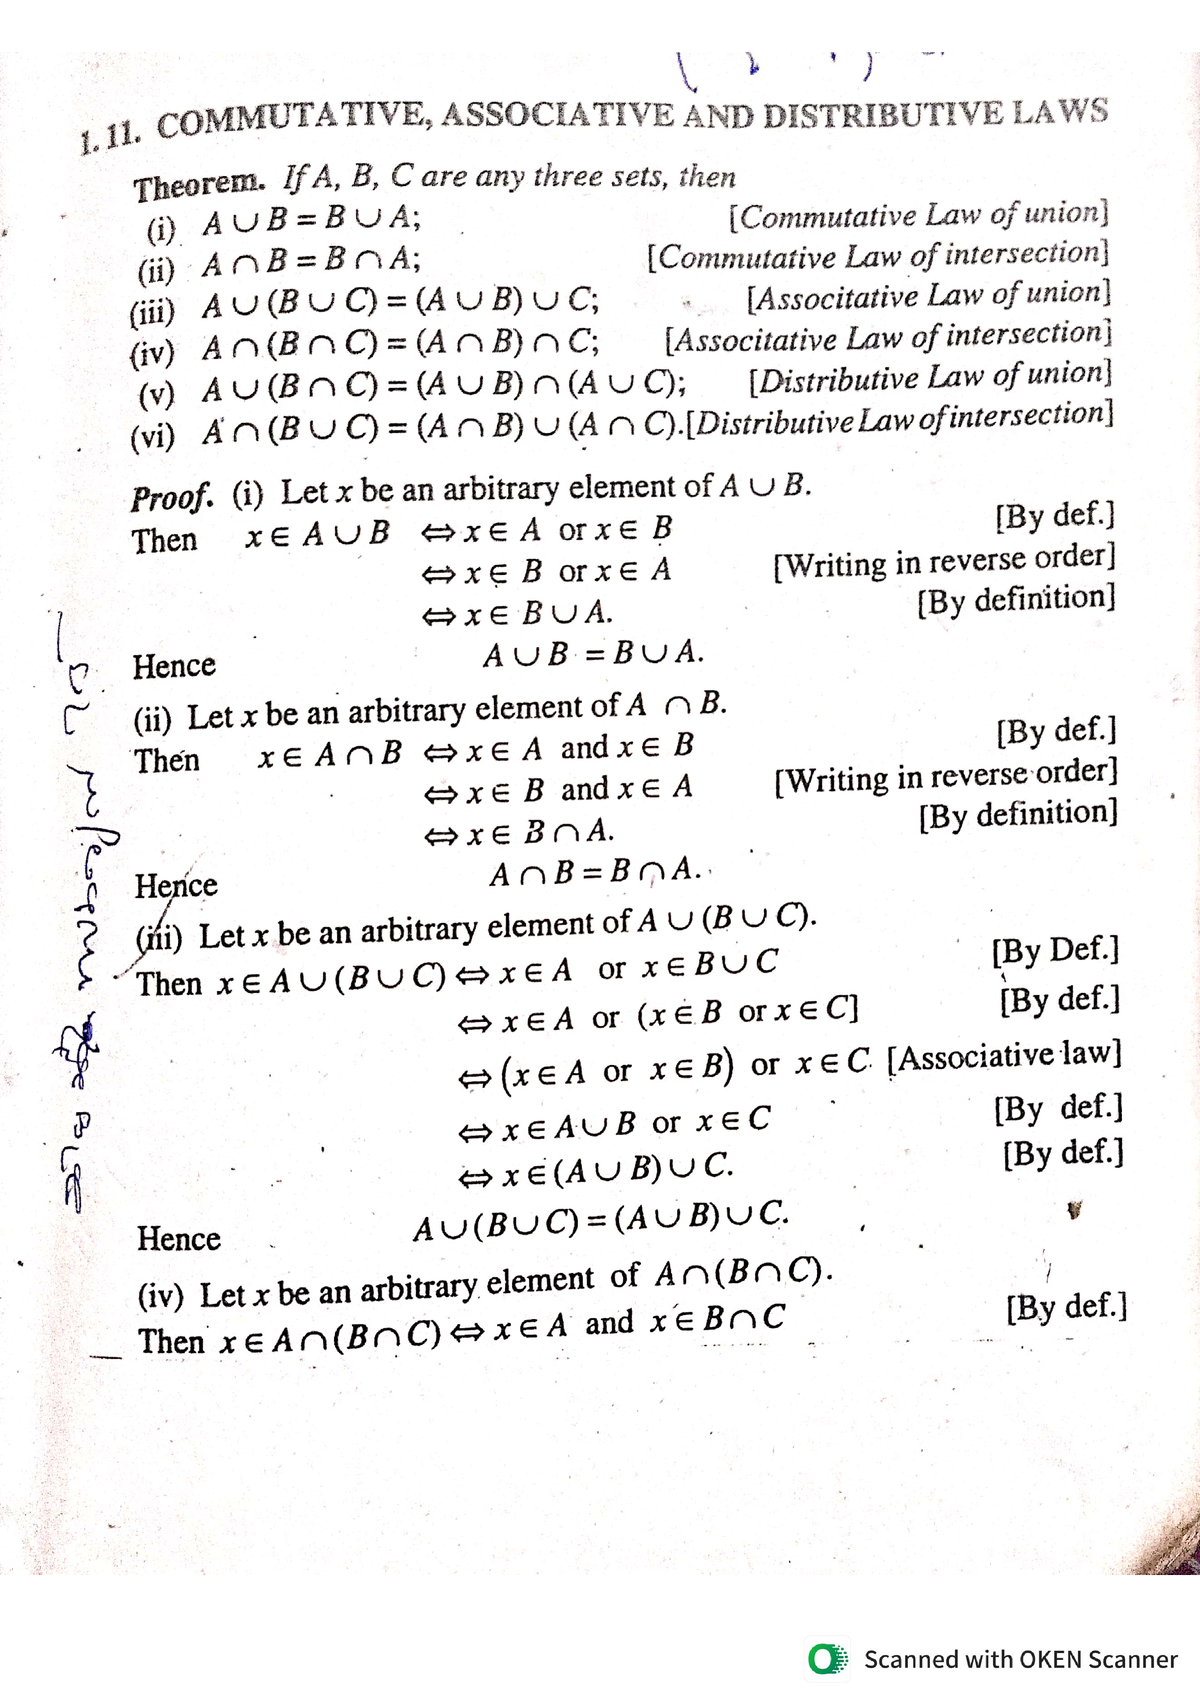 1.11. COMMUTATIVE, ASSOCIATIVE AND DISTRIBUTIVE LAWS
Theorem. If A, B, C are any three sets, then
(i) A ∪ B = B ∪ A; [Commutative Law of union]
(ii) A ∩ B = B ∩ A; [Commutative Law of intersection]
(iii) A ∪ (B ∪ C) = (A ∪ B) ∪ C; [Associtative Law of union]
(iv) A ∩ (B ∩ C) = (A ∩ B) ∩ C; [Associtative Law of intersection]
(v) A ∪ (B ∩ C) = (A ∪ B) ∩ (A ∪ C); [Distributive Law of union]
(vi) A ∩ (B ∪ C) = (A ∩ B) ∪ (A ∩ C). [Distributive Law of intersection]
Proof. (i) Let x be an arbitrary element of A ∪ B.
Then x ∈ A ∪ B ⇔ x ∈ A or x ∈ B [By def.]
⇔ x ∈ B or x ∈ A [Writing in reverse order]
⇔ x ∈ B ∪ A. [By definition]
Hence A ∪ B = B ∪ A.
(ii) Let x be an arbitrary element of A ∩ B.
Then x ∈ A ∩ B ⇔ x ∈ A and x ∈ B [By def.]
⇔ x ∈ B and x ∈ A [Writing in reverse order]
⇔ x ∈ B ∩ A. [By definition]
Hence A ∩ B = B ∩ A.
(iii) Let x be an arbitrary element of A ∪ (B ∪ C).
Then x ∈ A ∪ (B ∪ C) ⇔ x ∈ A or x ∈ B ∪ C [By Def.]
⇔ x ∈ A or (x ∈ B or x ∈ C] [By def.]
⇔ (x ∈ A or x ∈ B) or x ∈ C [Associative law]
⇔ x ∈ A ∪ B or x ∈ C [By def.]
⇔ x ∈ (A ∪ B) ∪ C. [By def.]
Hence A ∪ (B ∪ C) = (A ∪ B) ∪ C.
(iv) Let x be an arbitrary element of A ∩ (B ∩ C).
Then x ∈ A ∩ (B ∩ C) ⇔ x ∈ A and x ∈ B ∩ C [By def.]
Scanned with OKEN Scanner